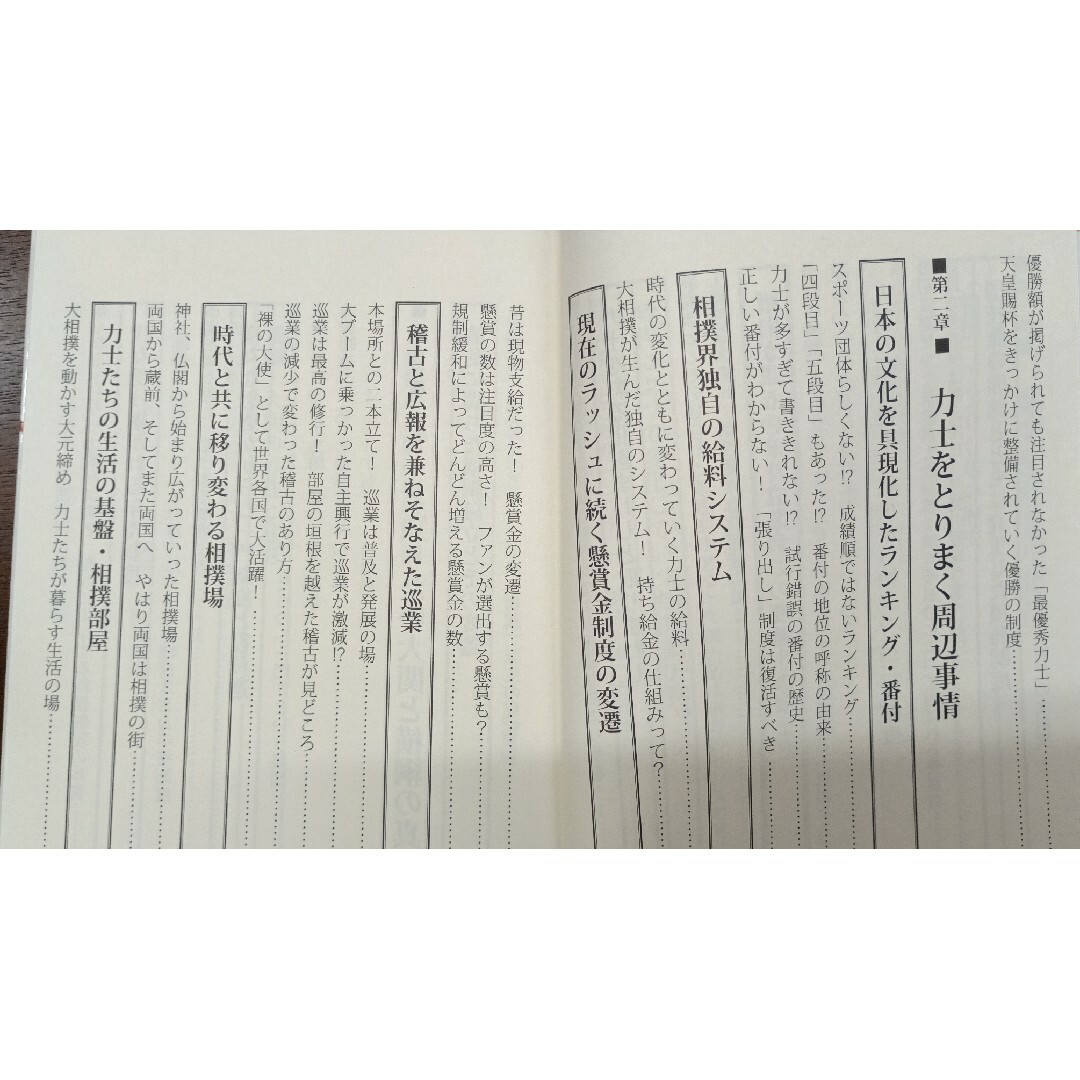 優勝額が掲げられても注目されなかった「最優秀力士」
天皇賜杯をきっかけに整備されていく優勝の制度
■第二章■　力士をとりまく周辺事情
日本の文化を具現化したランキング・番付
スポーツ団体らしくない!?　成績順ではないランキング
「四段目」「五段目」もあった!?　番付の地位の呼称の由来
力士が多すぎて書ききれない!?　試行錯誤の番付の歴史
正しい番付がわからない！　「張り出し」制度は復活すべき
相撲界独自の給料システム
時代の変化とともに変わっていく力士の給料
大相撲が生んだ独自のシステム！　持ち給金の仕組みって？
現在のラッシュに続く懸賞金制度の変遷
昔は現物支給だった！　懸賞金の変遷
懸賞の数は注目度の高さ！　ファンが選出する懸賞も？
規制緩和によってどんどん増える懸賞金の数
稽古と広報を兼ねそなえた巡業
本場所との二本立て！　巡業は普及と発展の場
大ブームに乗っかった自主興行で巡業が激減!?
巡業は最高の修行！　部屋の垣根を越えた稽古が見どころ
巡業の減少で変わった稽古のあり方
「裸の大使」として世界各国で大活躍！
時代と共に移り変わる相撲場
神社、仏閣から始まり広がっていった相撲場
両国から蔵前、そしてまた両国へ　やはり両国は相撲の街
力士たちの生活の基盤・相撲部屋
大相撲を動かす大元締め　力士たちが暮らす生活の場